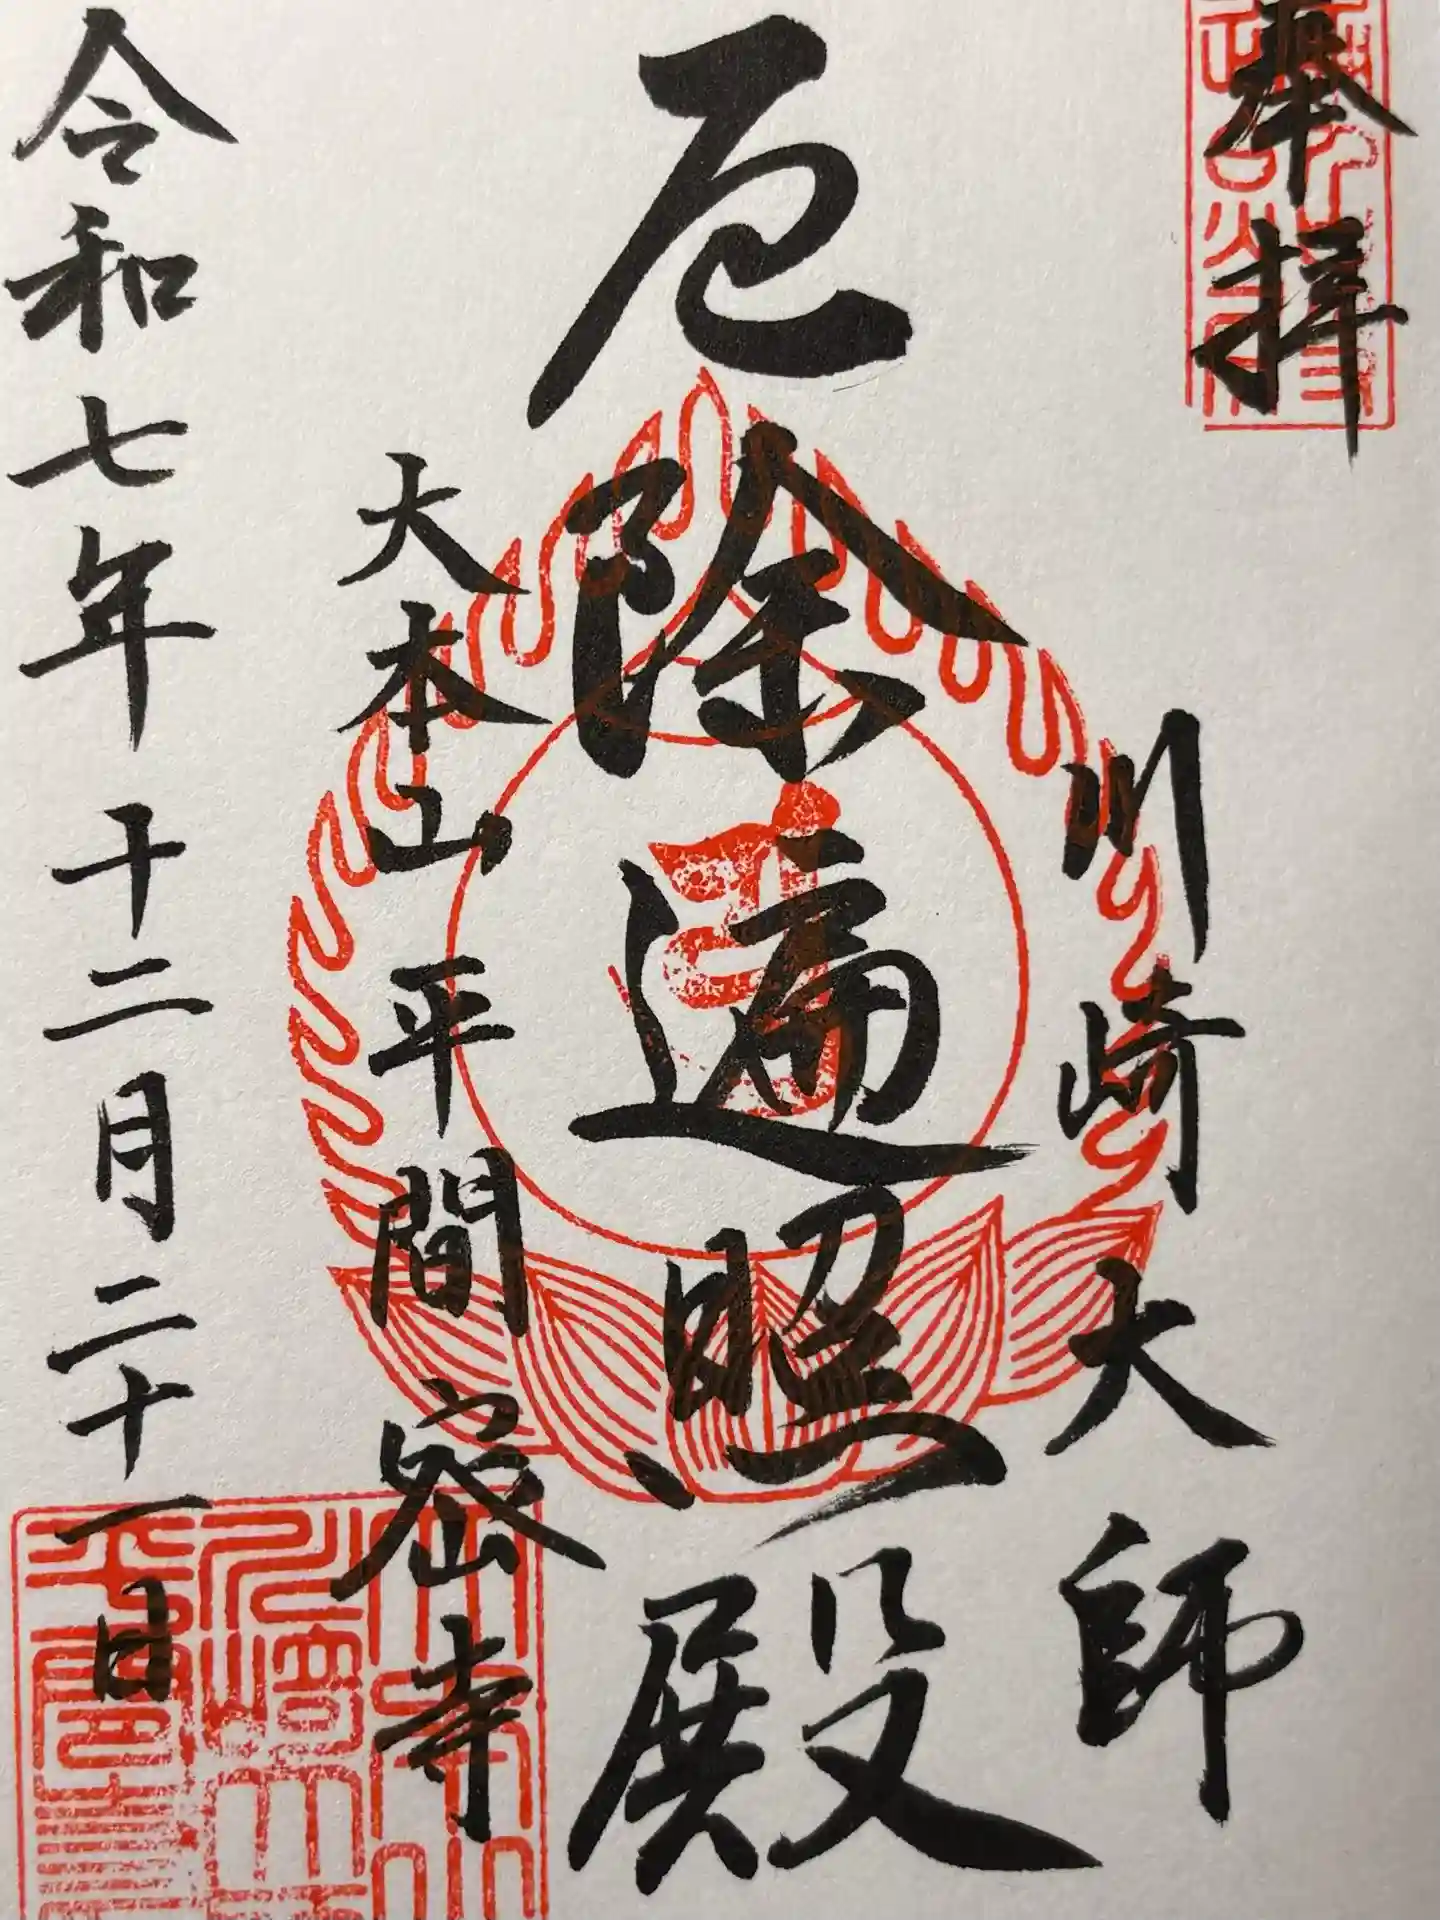 奉拝
川崎大師
厄除遍照殿
大本山平間密寺
令和七年十二月二十一日